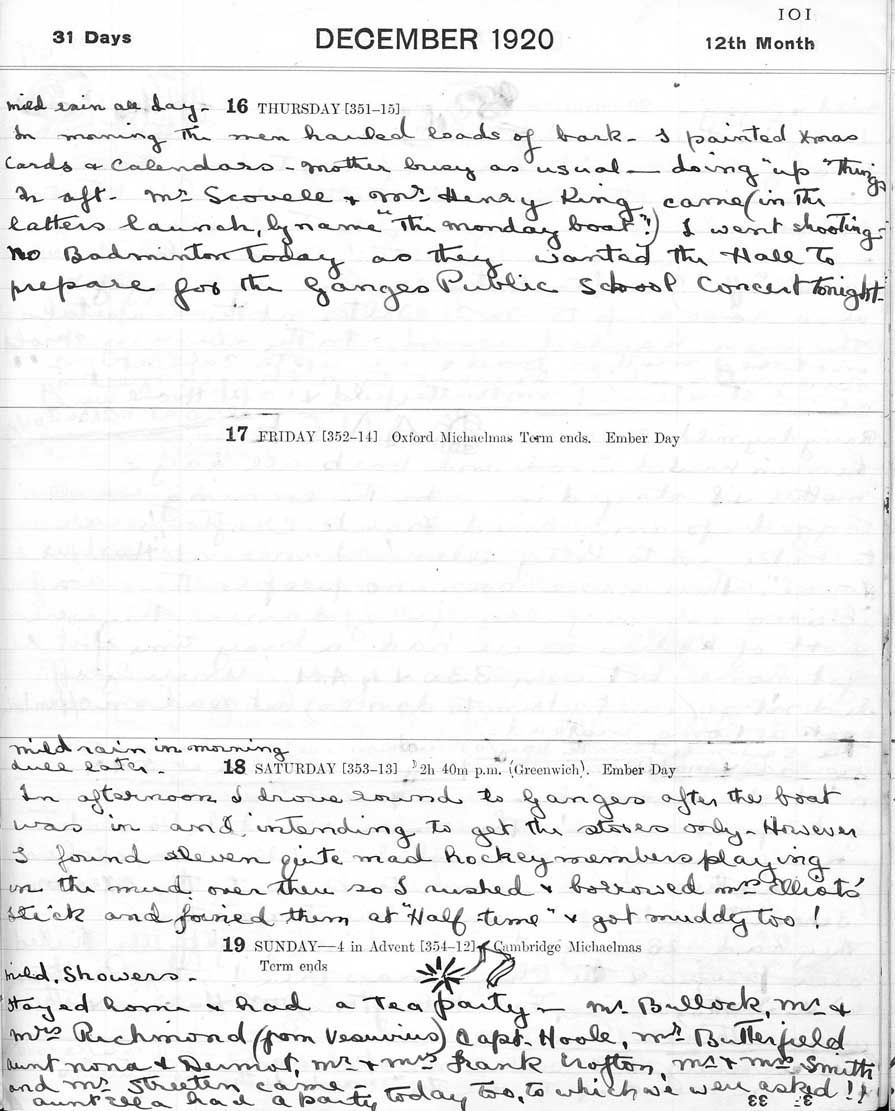 101
31 Days DECEMBER 1920 12th Month
mild rain all day - 16 THURSDAY [351-15]
In morning the men hauled loads of bark - I painted Xmas
Cards & Calendars - Mother busy as usual - doing "up" Things
In aft. Mr Scovell & Mr Henry King came (in the
latters launch, by name "The Monday boat"!) I went shooting -
No Badminton today as they wanted the Hall to
prepare for the Ganges Public School Concert tonight -
17 FRIDAY [352-14] Oxford Michaelmas Term ends. Ember Day
mild rain in morning
dull later - 18 SATURDAY [353-13] ☽ 2h 40m p.m. (Greenwich). Ember Day
In afternoon I drove round to Ganges after the boat
was in and intending to get the stores only - However
I found eleven quite mad hockey members playing
in the mud over there so I rushed & borrowed Mrs Elliots'
stick and joined them at "Half-time" & got muddy too!
19 SUNDAY—4 in Advent [354-12] Cambridge Michaelmas
Term ends
mild. Showers -
Stayed home & had a tea party - Mr Bullock, Mr &
Mrs Richmond (from Vesuvius) Capt. Hoole, Mr Butterfield
Aunt Nona & Dermot, Mr & Mrs Frank Crofton, Mr & Mrs Smith
and Mr Streeten came -
Aunt ella had a party today too, to which we were asked!!